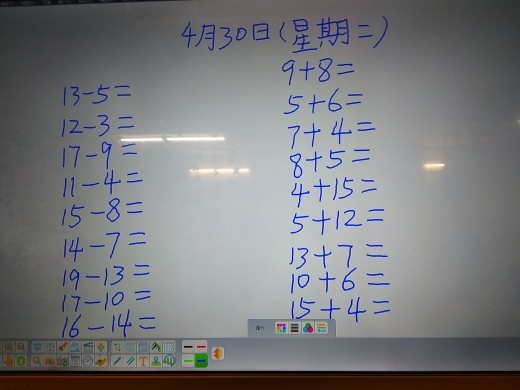 4月30日(星期二)
13-5=
12-3=
17-9=
11-4=
15-8=
14-7=
19-13=
17-10=
16-14=
9+8=
5+6=
7+4=
8+5=
4+15=
5+12=
13+7=
10+6=
15+4=